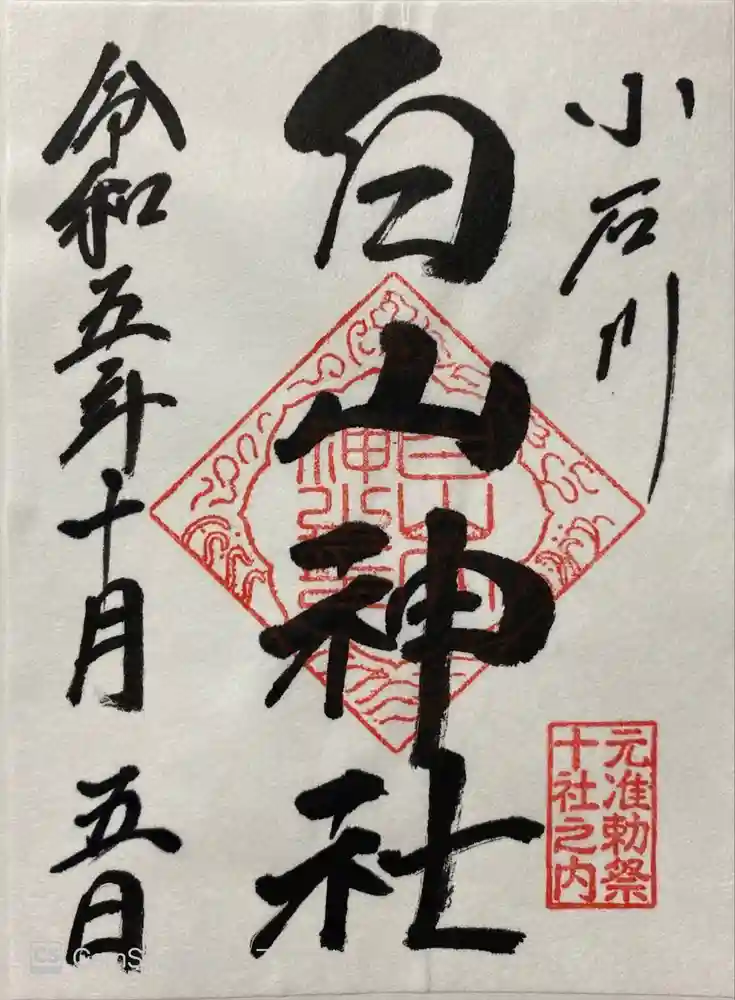 小石川
白山神社
令和五年十月五日
元准勅祭
十社之内
CS CamS